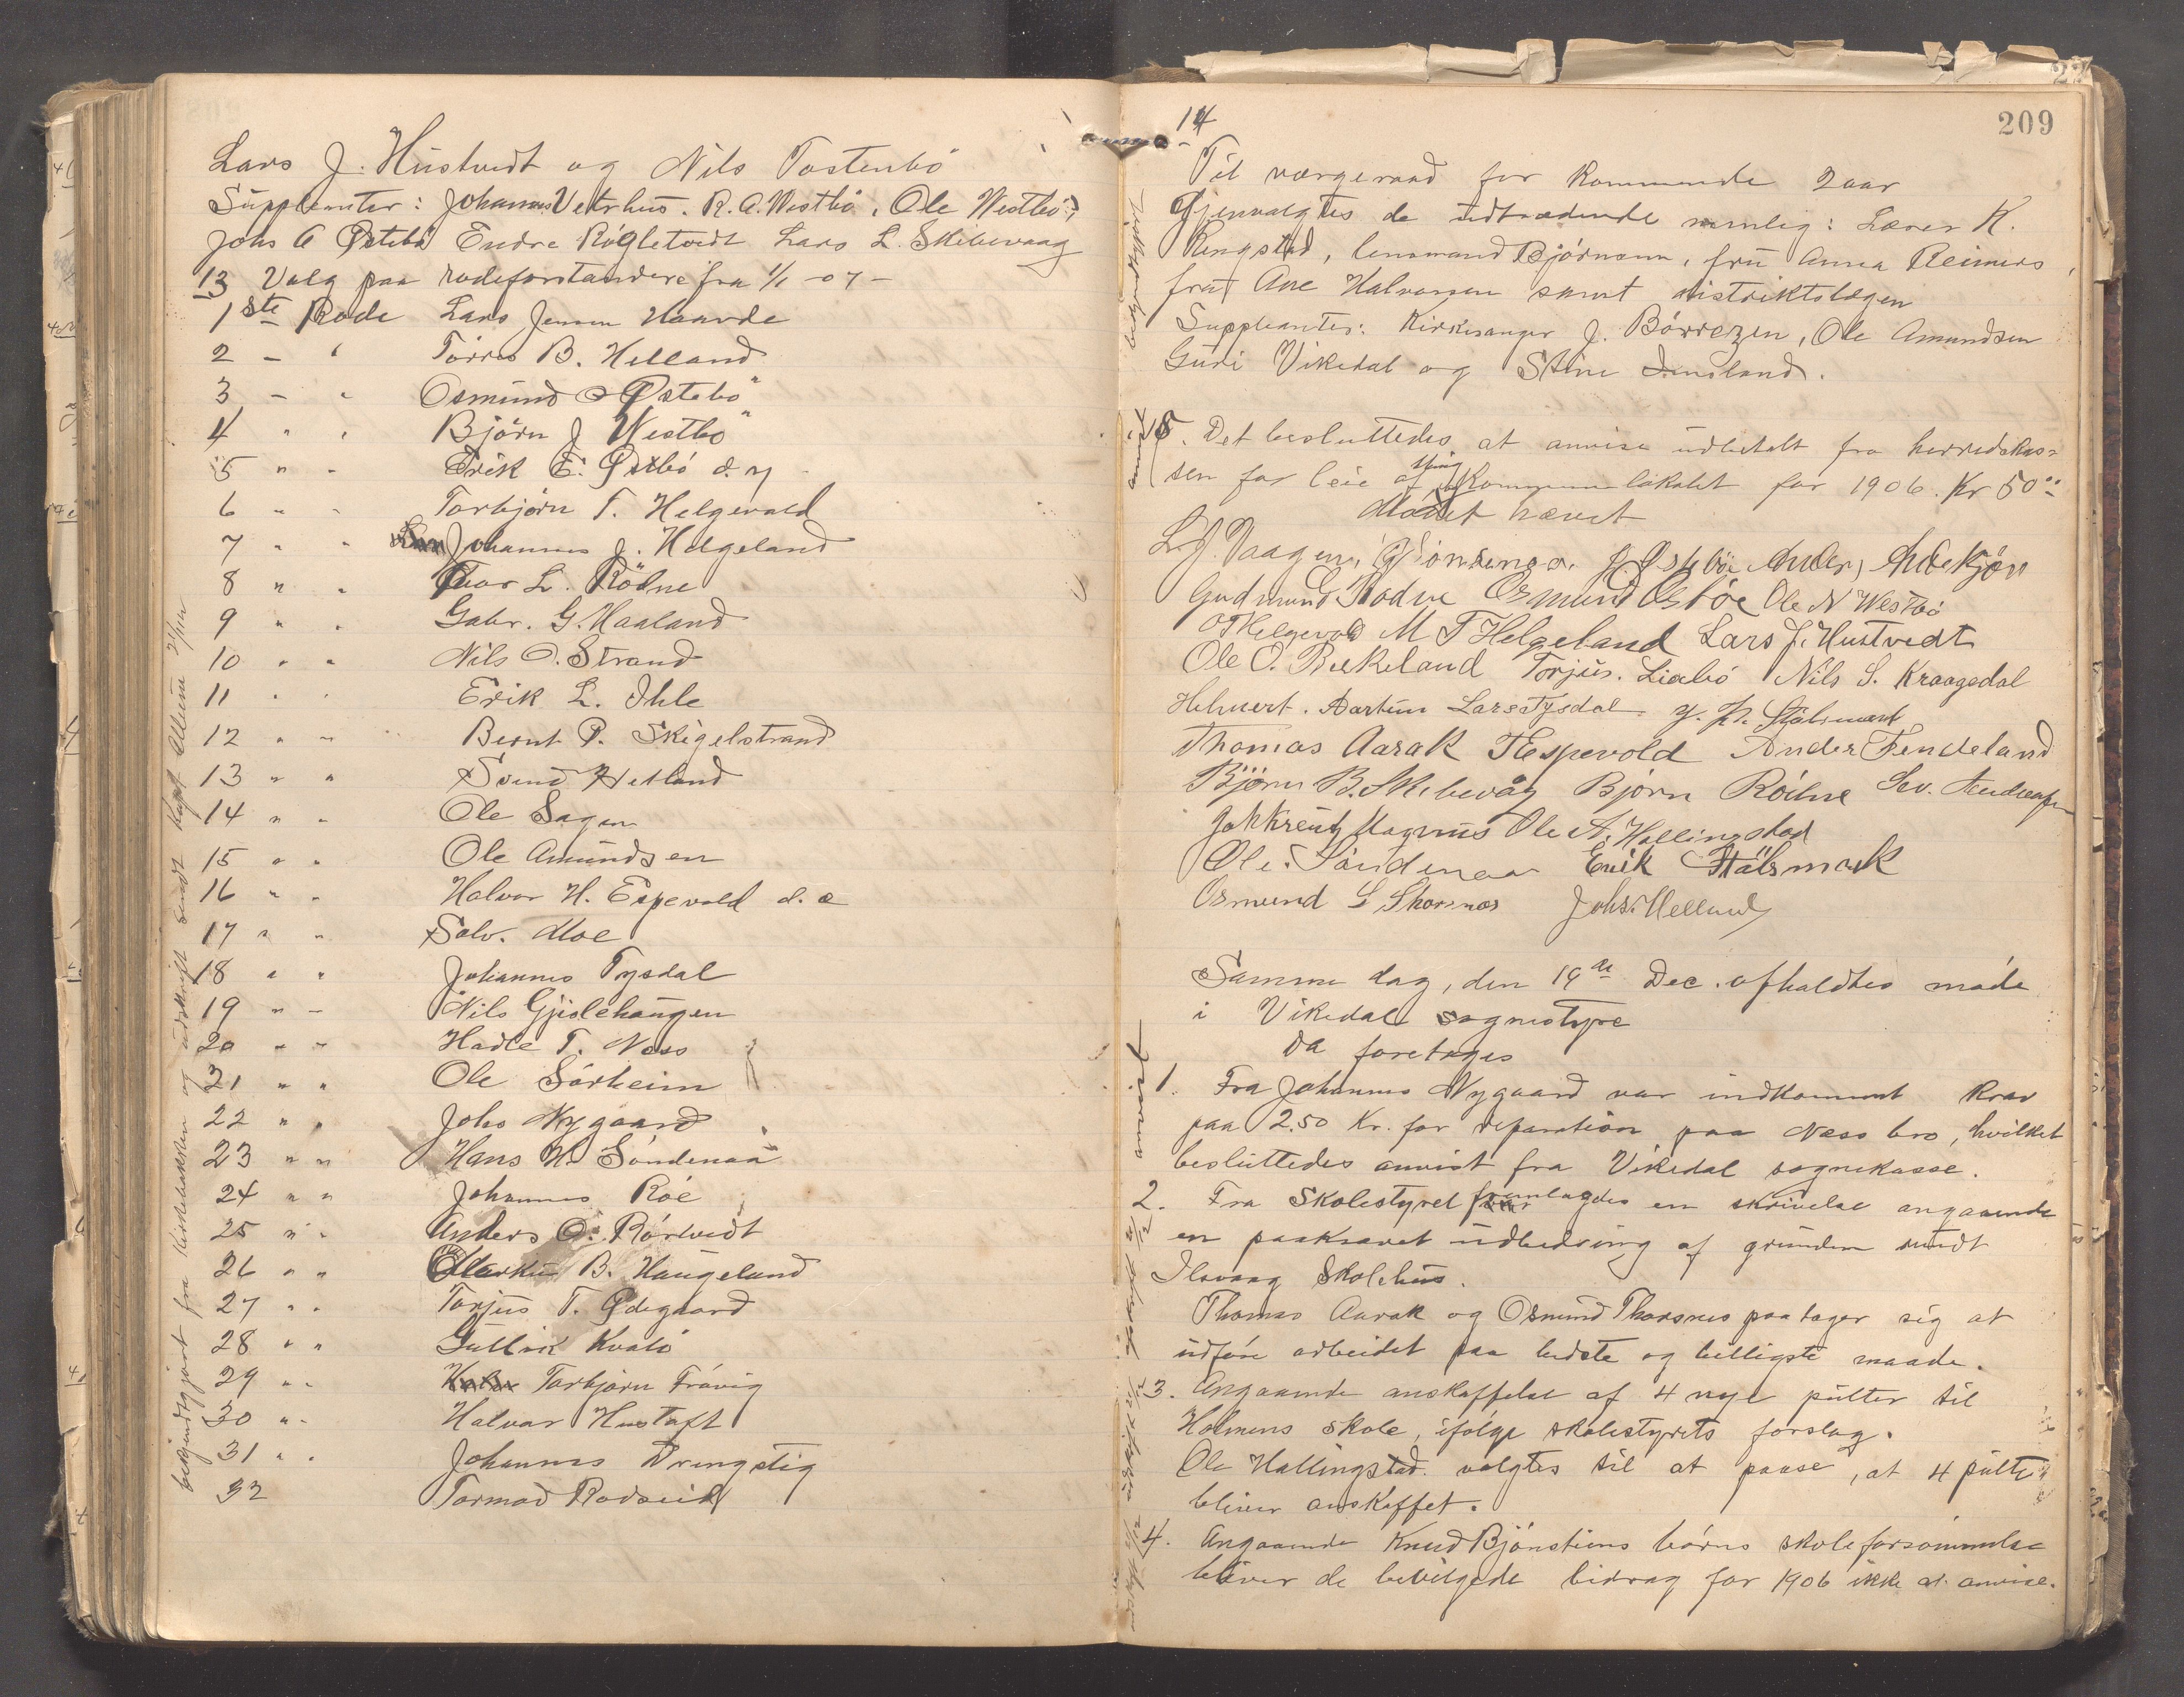 Lars J. Hustvedt og Nils Tostenbö
Suppleanter: Johannes Vetrhus. R. A. Westbö, Ole Westbö,
Johs A Østebö Endre Røgletvedt Lars L. Skibevaag
13 Valg paa rodeforstandere fra 1/1 -07-
1ste Rode Lars Jensen Haavde
2 - " Törres B. Helland
3 - " Osmund O Østebö
4 " " Björn J Westbö
5 " " Erik E. Østbö d. y
6 " " Torbjörn T. Helgevold
7 " " Johannes J. Helgeland
8 " " Ivar L. Rödne
9 " " Gabr. G. Haaland
10 " " Nils O. Strand
11 " " Erik L. Ihle
12 " " Bernt P. Skigelstrand
13 " " Svend Hetland
14 " " Ole Sagen
15 " " Ole Amundsen
16 " " Halvor H. Espevold d. e
17 " " Salv. Moe
18 " " Johannes Tysdal
19 " - Nils Gjislehaugen
20 " " Hadle T. Næss
21 " " Ole Sörheim
22 " " Johs Nygaard
23 " " Hans H. Söndenaa
24 " " Johannes Röe
25 " " Anders O. Rörtvedt
26 " " B. Haugeland
27 " " Torjus T. Ødegaard
28 " " Gullik Kvalö
29 " " Torbjörn Frövig
30 " " Halvar Hustoft
31 " " Johannes Drengstig
32 Tormod Rodseik
bekjendtgjort fra Kirkebakken og udskrift sendt
209
14
Til værgeraad for kommende 2 aar
Gjenvalgtes de udtrædende nemlig: Lærer K.
Ringstad, lensmand Björnsen, fru Anna Reimers,
fru Ane Halvorsen samt distriktslægen
Suppleanter: Kirkesanger J. Börrezen, Ole Amundsen
Guri Vikedal og Stine Imsland.
15. Det besluttedes at anvise udbetalt fra herredskas=
sen for leie af thing kommunelokalet for 1906. Kr 50
Mödet hævet
L. J. Vaagen, Söndenaa. J. Østebö Anders Aadekjön
Gudmund Rodne Osmund Østbøe Ole N Westbö
O T Helgevold M T Helgeland Lars J. Hustvedt
Ole O. Birkeland Torjus. Liabö Nils S. Kraagedal
Helmert. Aartun Lars Tysdal
Thomas Aarak T Espevold Ander Fendeland
Björn B. Skibevåg Björn Röilne Sev. Andreasen
Joh Kreutz Magnus Ole A. Hallingstad
Ole. Söndenaa Erik Stålsmark
Osmund G Thorsnæs Johs. Helland
Samme dag, den 19de Dec. afholdtes möde
i Vikedal sognestyre
Da foretoges
1. Fra Johannes Nygaard var indkommet krav
paa 2.50 Kr. for reparation paa Næss bro, hvilket
besluttedes anvist fra Vikedal sognekasse.
2. Fra Skolestyret fremlagdes en skrivelse angaaende
en paakrævet udbedring af grunden rundt
Ilsvaag Skolehus.
Thomas Aarak og Osmund Thorsnes paatager sig at
udföre arbeidet paa bedste og billigste maade.
3. Angaaende anskaffelse af 4 nye pulter til
Holmens skole, ifölge skolestyrets forslag.
Ole Hallingstad valgtes til at passe, at 4 pulte
bliver anskaffet.
4. Angaaende Knud Björnstins börns skoleforsömmelse
bliver de bevilgede bidrag for 1906 ikke at anvise.